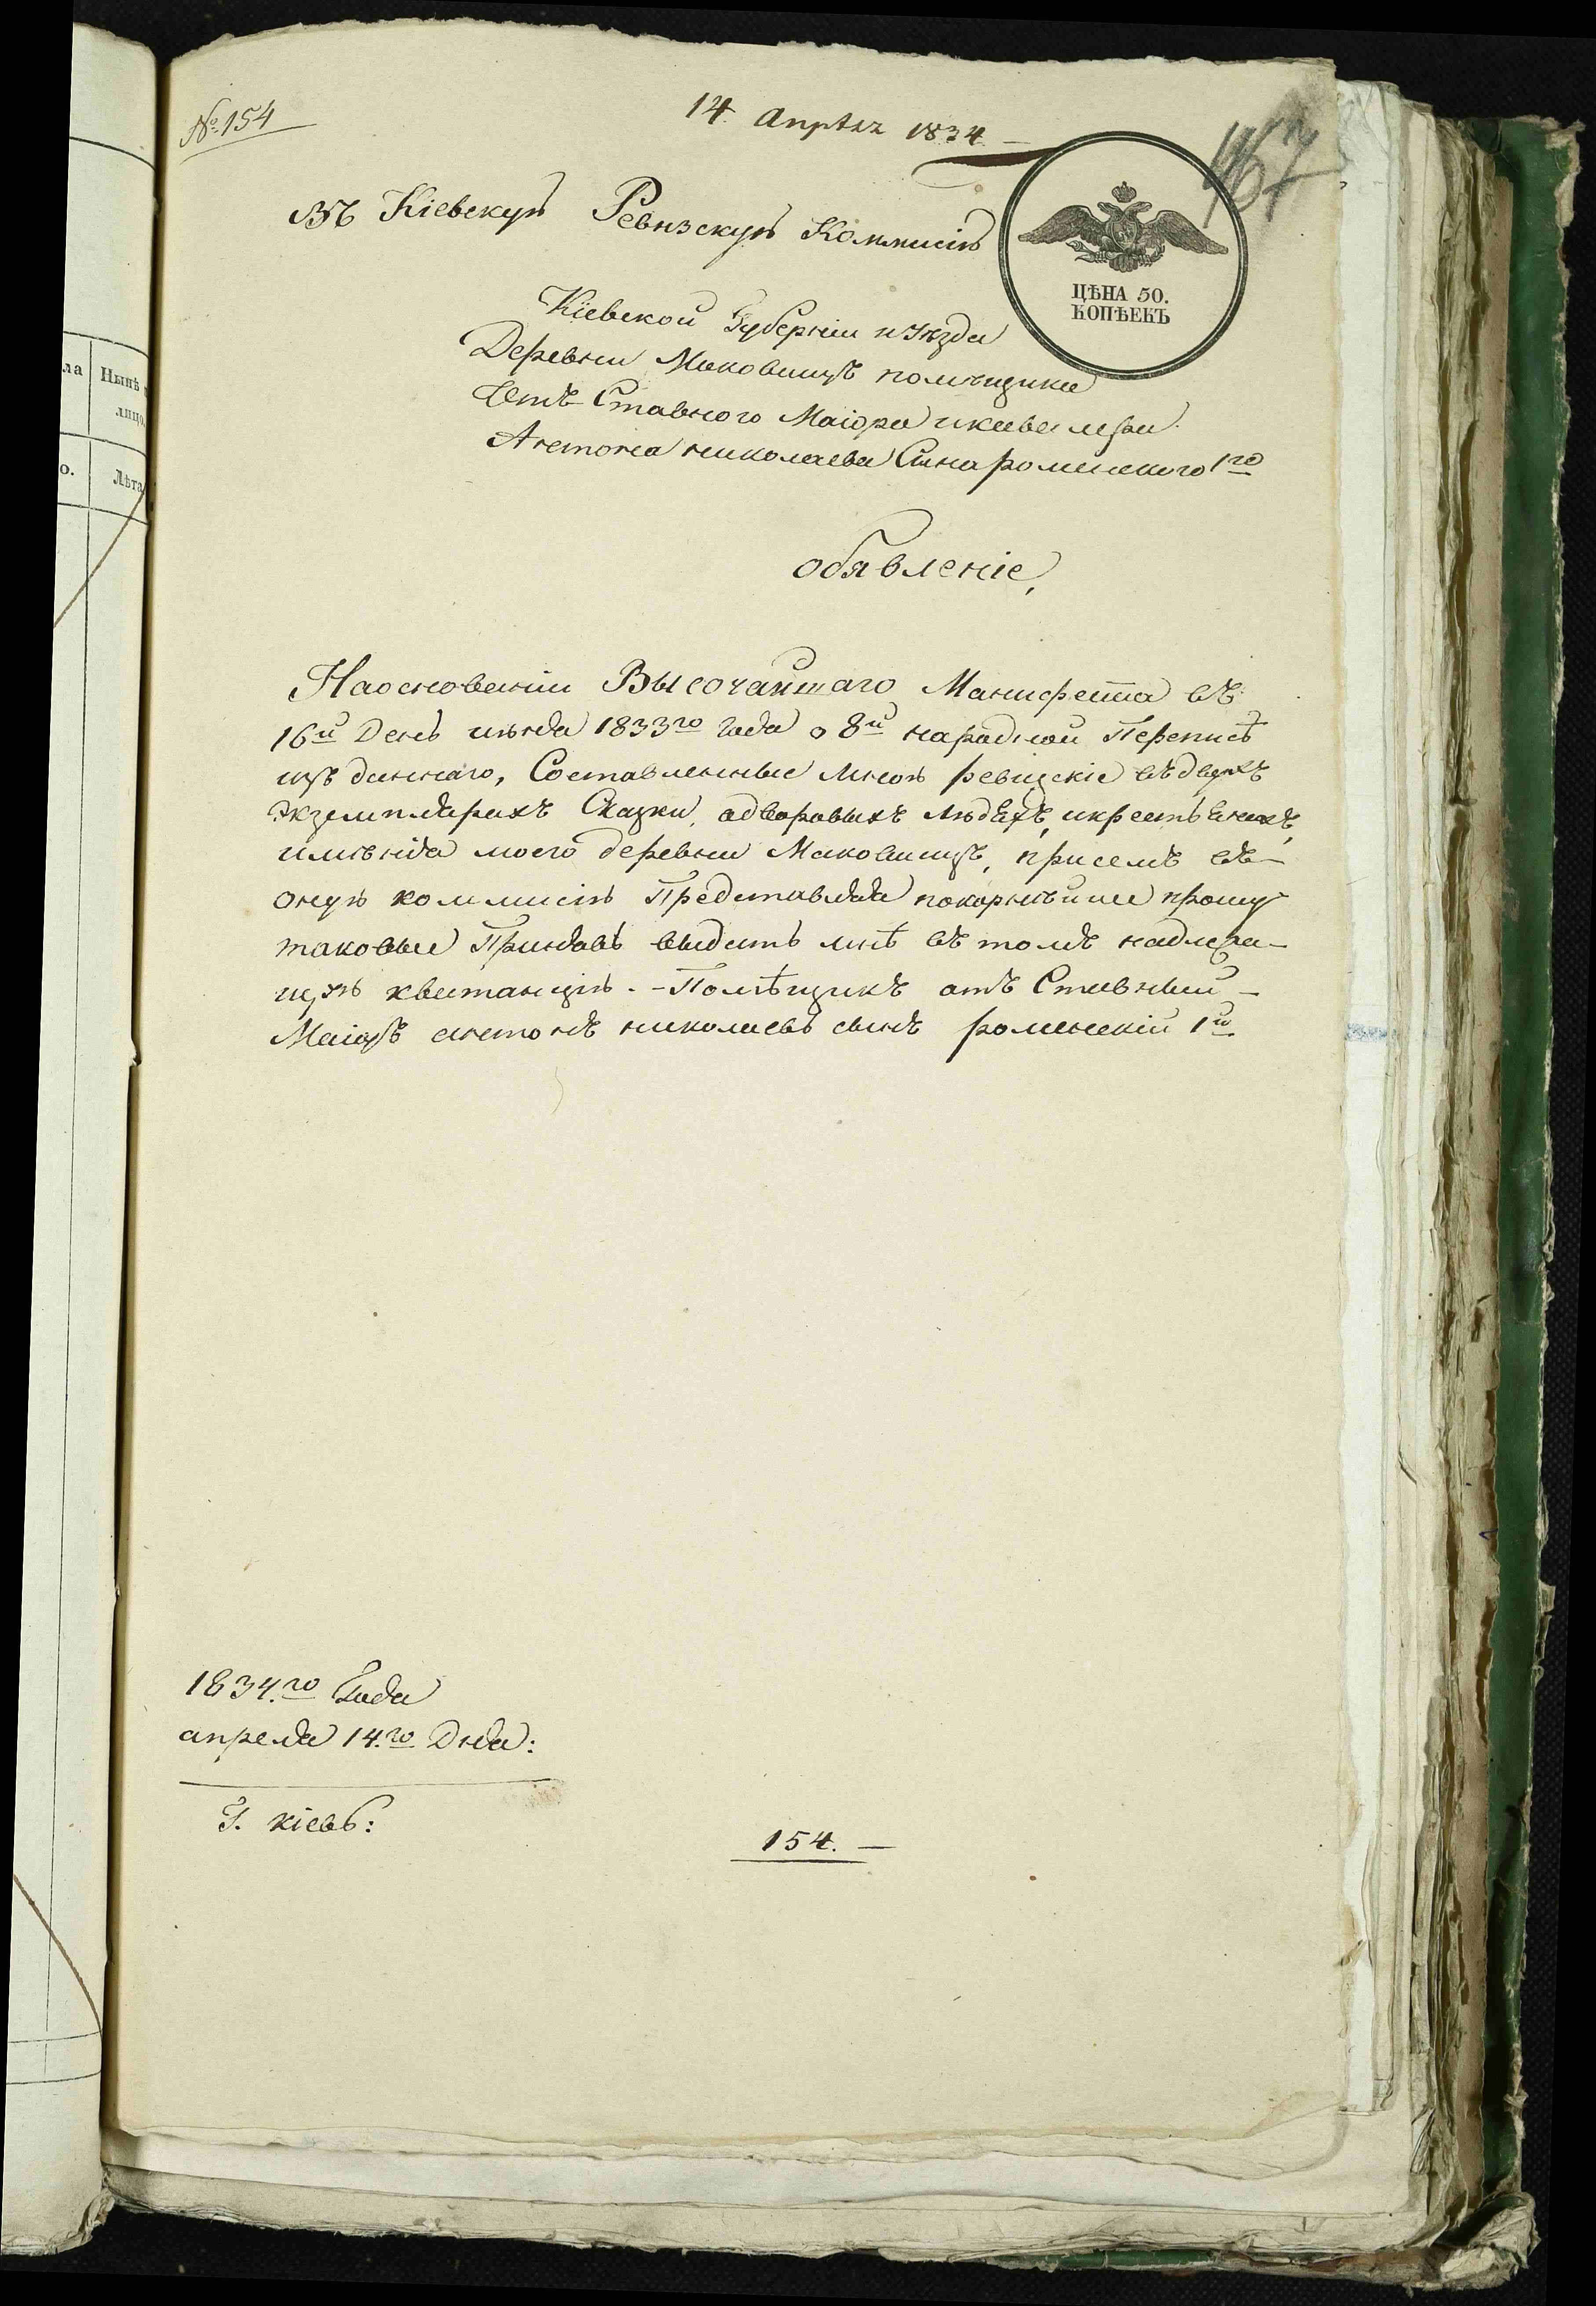 № 154
14 Апрѣля 1834.
467
Въ Кіевскую Ревизскую Коммисію
ЦѢНА 50.
КОПѢЕКЪ
Кіевской Губерніи и уѣзда
Деревни Маковищъ помѣщика
Отъ Ставного Маіора и кавалера
Антона николаева Сына роменского 1го
обявленіе,
На основаніи Высочайшаго Манифеста въ
16й День июня 1833го года о 8й народной Переписѣ
изъ даннаго, Составленные мною ревизскіе въ двухъ
экземплярахъ Сказки, одворовыхъ людѣхъ, и крестьянахъ,
имѣнія моего деревни Маковищъ, присемъ въ
оную коммисію Представляя покорнѣйше прошу
таковые Принявъ выдать мнѣ въ томъ надлежа-
щую квитанцію. - Помѣщикъ отъ Ставный
Маіоръ антонъ николаевъ сынъ роменскій 1й
1834.го Года
апреля 14.го Дня:
Г. кіевъ:
154.
ла
Нынѣ
лицо.
о.
Лѣта